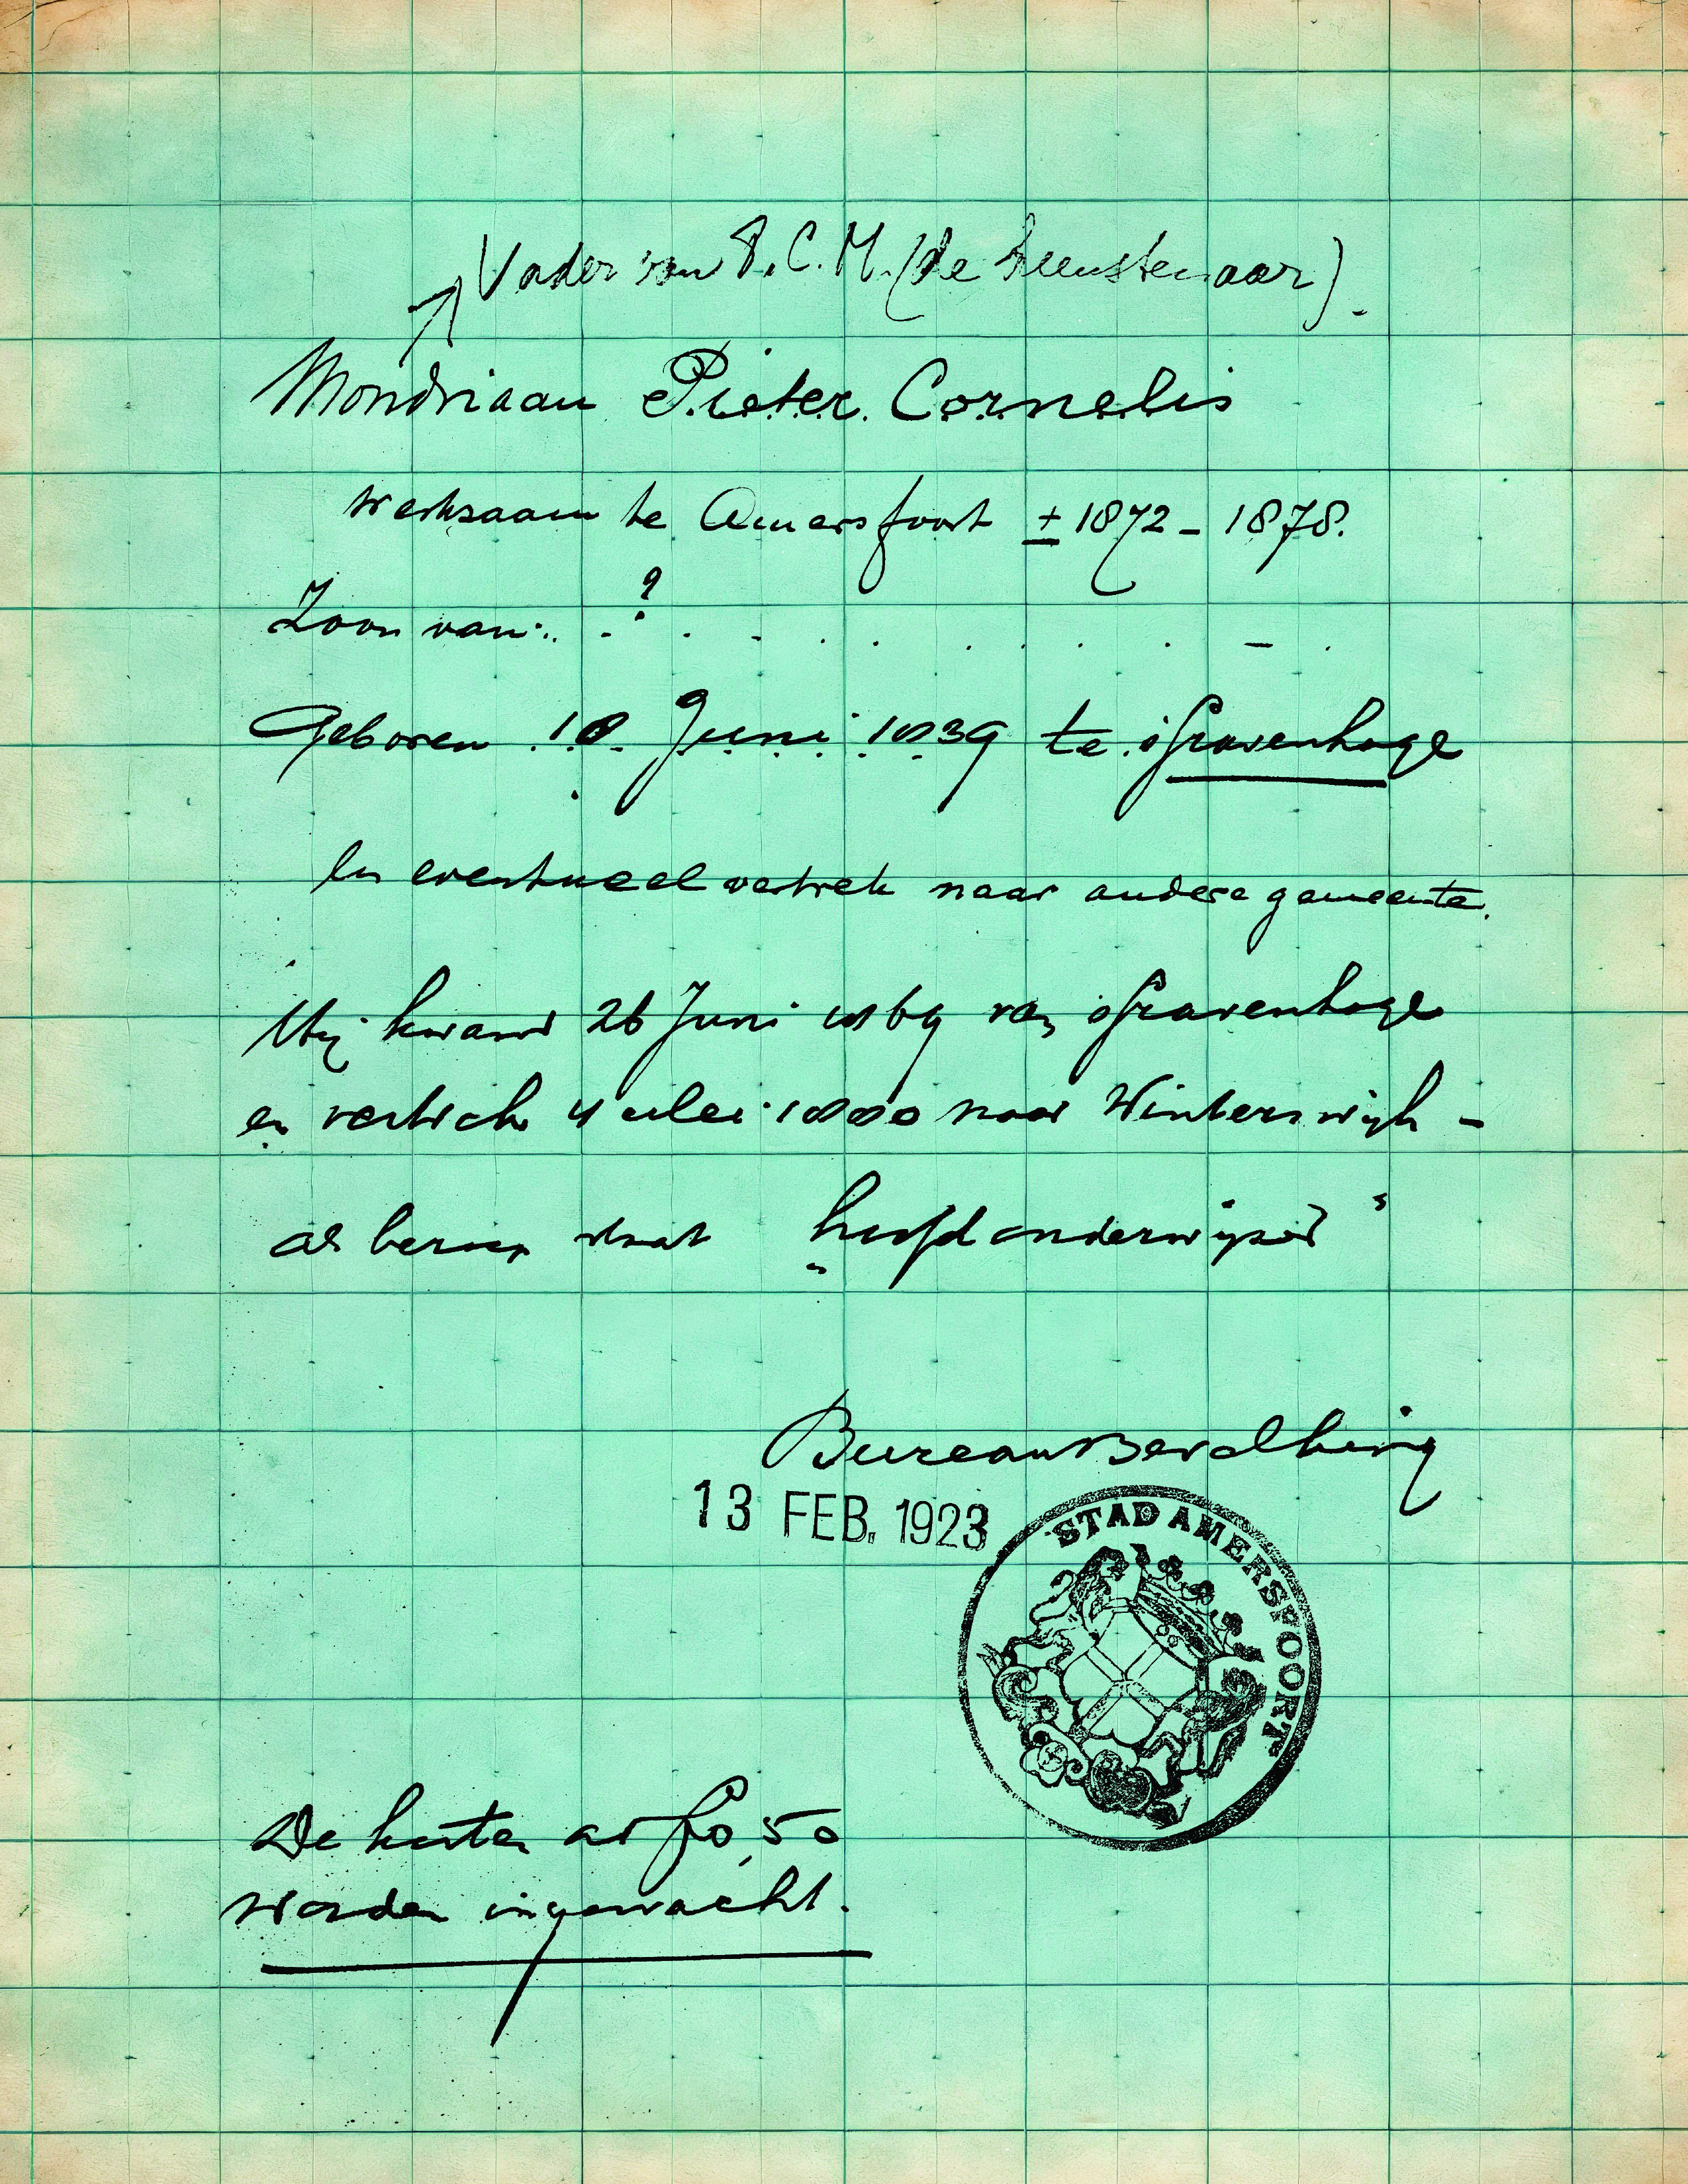 Vader van P. C. M. (de kunstenaar).
Mondriaan Pieter Cornelis
werkzaam te Amersfoort ± 1872 - 1878.
Zoon van: . . ? . . . . . . . . - .
Geboren 18 Juni 1839 te 'sGravenhage
en eventueel vertrek naar andere gemeente.
Hij kwam 26 Juni 1869 van 'sGravenhage
en vertrok 4 Mei 1880 naar Winterswijk -
als beroep staat „hoofdonderwijzer"
Bureau Bevolking
13 FEB. 1923
STAD AMERSFOORT
De kosten ad f 0,50
worden ingewacht.